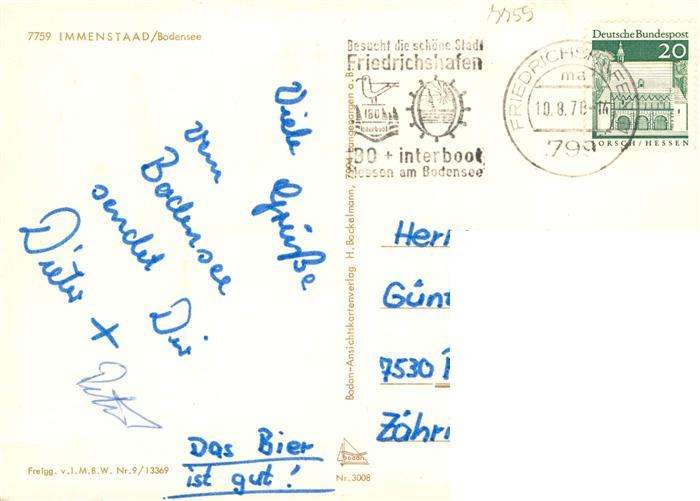 7759 IMMENSTAAD/Bodensee
7755
Viele Grüße
vom
Bodensee
sendet Dir
Dieter +
Das Bier
ist gut!
Freigg. v. I. M. B. W. Nr. 9/13369
Bodan-Ansichtskartenverlag H. Bockelmann,
bodan
Nr. 3008
Besucht die schöne Stadt
Friedrichshafen
IBO
interboot
IBO + interboot
Messen am Bodensee
FRIEDRICHSHAFEN
ma
10.8.70-14
799
Deutsche Bundespost
20
LORSCH/HESSEN
Herr
Günt
7530
Zähri